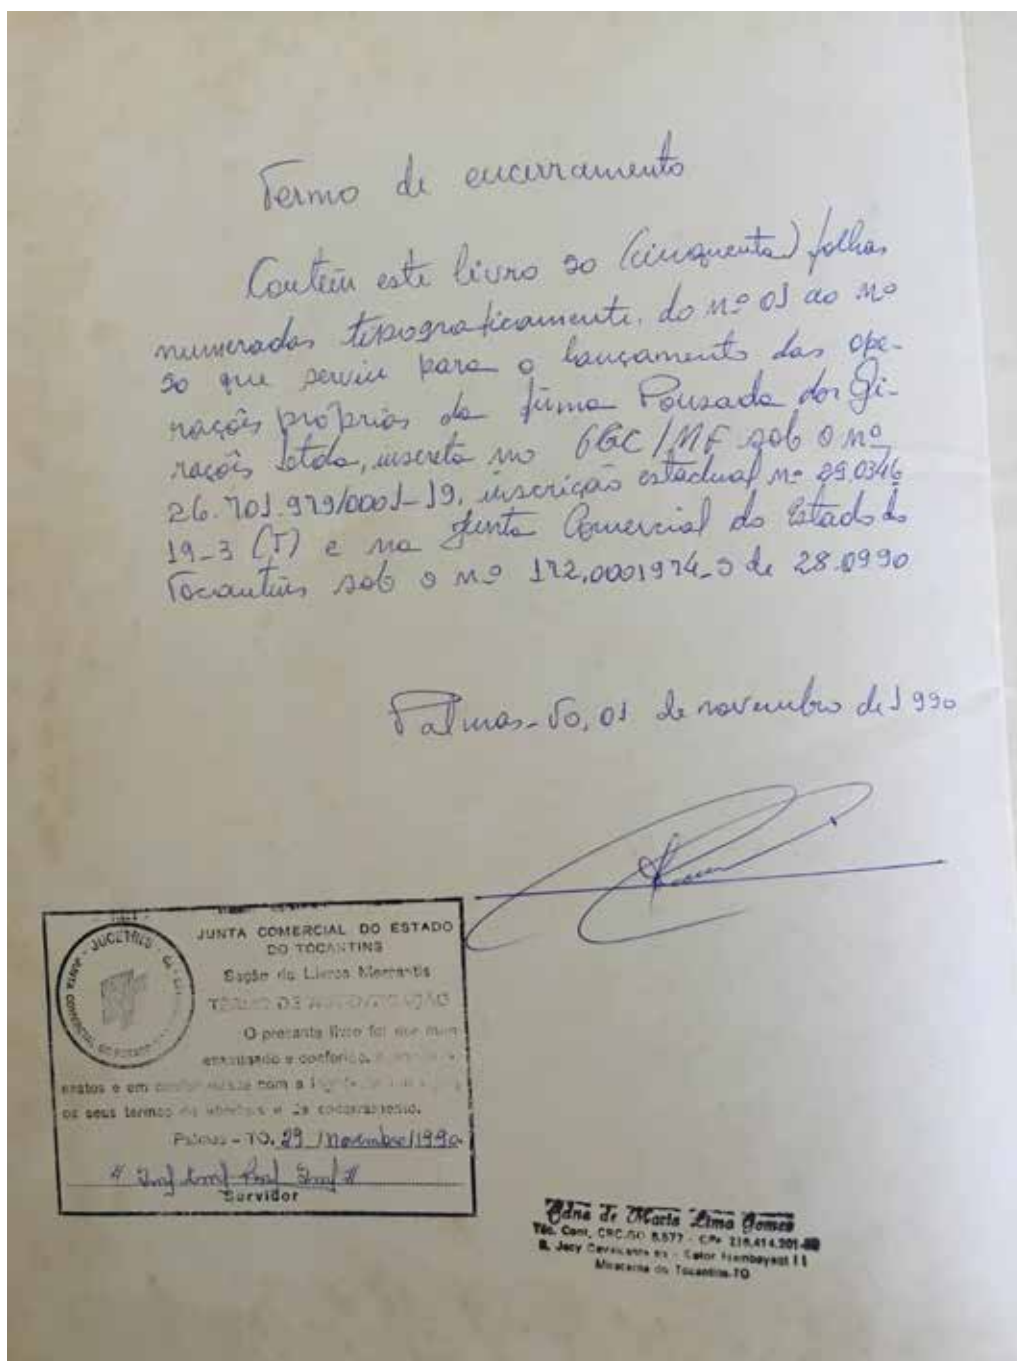 Termo de encerramento
Contém este livro 50 (cinquenta) folhas
numeradas tipograficamente, do nº 01 ao nº
50 que serviu para o lançamento das ope-
rações próprias da firma Pousada dos Gi-
rações Ltda, inscrita no CGC/MF sob o nº
26.701.979/0001-19, inscrição estadual nº 29.0346
19-3 (T) e na Junta Comercial do Estado do
Tocantins sob o nº 172.0001974-9 de 28.0990
Palmas-To, 01 de novembro de 1990
JUCETINS
JUNTA COMERCIAL DO ESTADO
DO TOCANTINS
Seção de Livros Mercantis
TERMO DE AUTENTICAÇÃO
O presente livro foi por mim
examinado e conferido,
exatos e em conformidade com a
os seus termos de abertura e de encerramento.
Palmas - TO. 29 / Novembro / 1990
Servidor
Edna de Maria Lima Gomes
Téc. Cont. CRC.GO 8.577 - CPF 216.414.201-
R. Jacy Cavalcante - Setor II
Miracema do Tocantins-TO